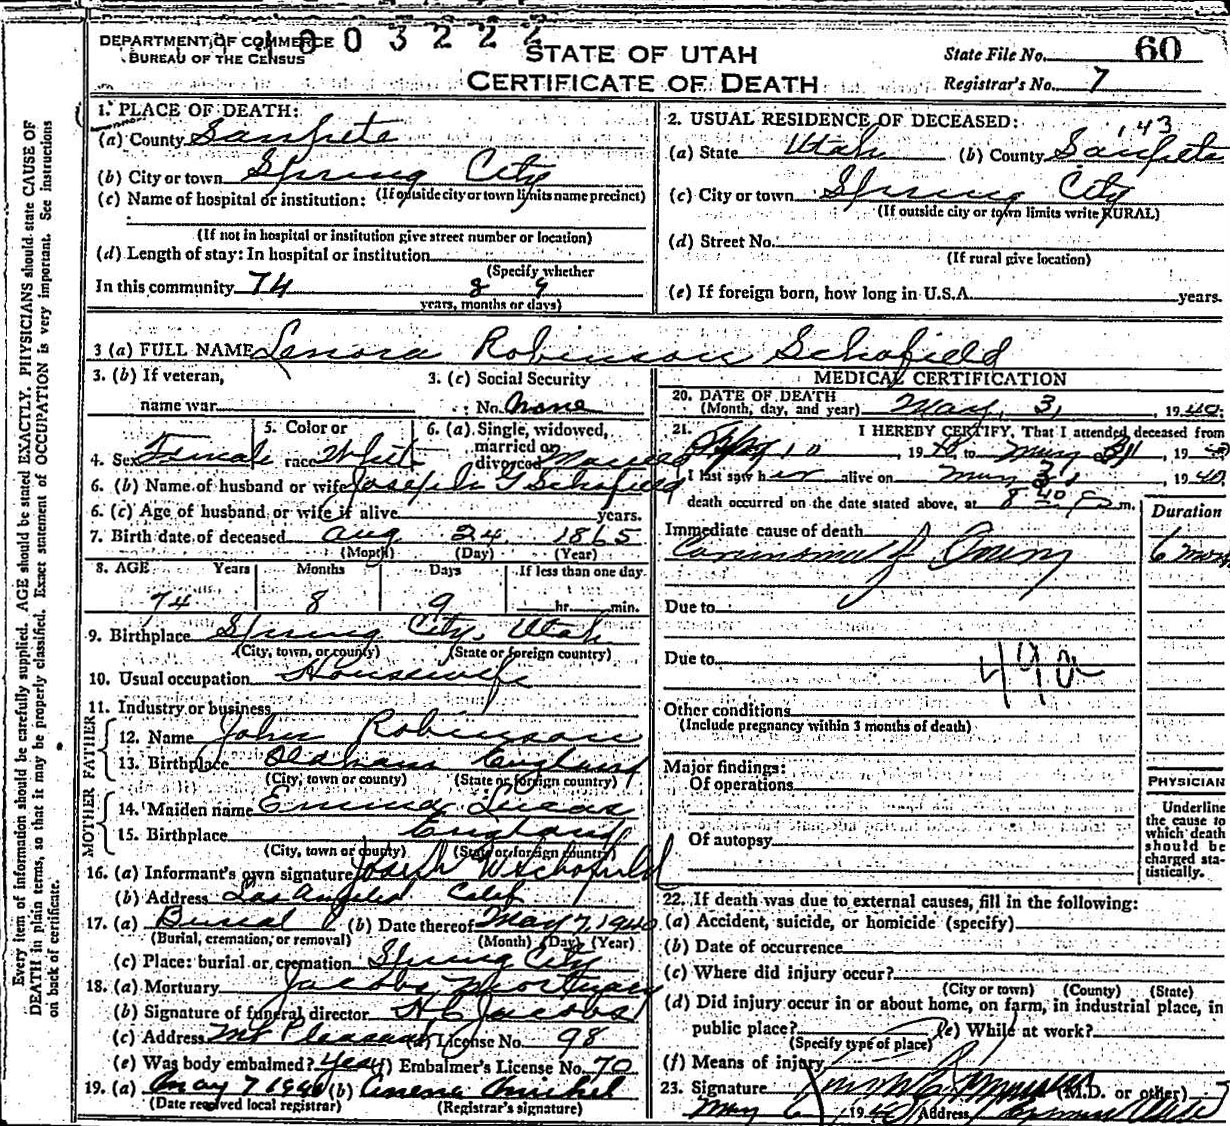 DEPARTMENT OF COMMERCE
BUREAU OF THE CENSUS
003222
STATE OF UTAH
CERTIFICATE OF DEATH
State File No. 60
Registrar's No. 7
Every item of information should be carefully supplied. AGE should be stated EXACTLY. PHYSICIANS should state CAUSE OF
DEATH in plain terms, so that it may be properly classified. Exact statement of OCCUPATION is very important. See instructions
on back of certificate.
1. PLACE OF DEATH:
(a) County Sanpete
(b) City or town Spring City
(If outside city or town limits name precinct)
(c) Name of hospital or institution:
(If not in hospital or institution give street number or location)
(d) Length of stay: In hospital or institution
(Specify whether
In this community 74 8 9
years, months or days)
2. USUAL RESIDENCE OF DECEASED:
143
(a) State Utah (b) County Sanpete
(c) City or town Spring City
(If outside city or town limits write RURAL)
(d) Street No.
(If rural give location)
(e) If foreign born, how long in U.S.A. years.
3 (a) FULL NAME Lenora Robinson Schofield
3. (b) If veteran,
name war
3. (c) Social Security
No. none
4. Sex Female
5. Color or
race White
6. (a) Single, widowed,
married or
divorced Married
6. (b) Name of husband or wife Joseph Schofield
6. (c) Age of husband or wife if alive years.
7. Birth date of deceased Aug 24 1865
(Month) (Day) (Year)
8. AGE Years Months Days If less than one day
74 8 9 hr. min.
9. Birthplace Spring City, Utah
(City, town, or county) (State or foreign country)
10. Usual occupation Housewife
11. Industry or business
FATHER
12. Name John Robinson
13. Birthplace Oldham England
(City, town or county) (State or foreign country)
MOTHER
14. Maiden name Emma Lucas
15. Birthplace England
(City, town or county) (State or foreign country)
16. (a) Informant's own signature Joseph W Schofield
(b) Address Los Angeles Calif
17. (a) Burial (b) Date thereof May 7, 1940
(Burial, cremation, or removal) (Month) (Day) (Year)
(c) Place: burial or cremation Spring City
18. (a) Mortuary Jacobs Mortuary
(b) Signature of funeral director H C Jacobs
(c) Address Mt Pleasant (d) License No. 98
(e) Was body embalmed? yes (f) Embalmer's License No. 70
19. (a) May 7 1940 (b)
(Date received local registrar) (Registrar's signature)
MEDICAL CERTIFICATION
20. DATE OF DEATH
(Month, day, and year) May 3, 1940
21. I HEREBY CERTIFY, That I attended deceased from
10, 1940, to May 3, 1940
I last saw her alive on May 3, 1940,
death occurred on the date stated above, at 8 40 P m.
Duration
Immediate cause of death
Carcinoma of Ovary 6 mos
Due to
Due to
49a
Other conditions
(Include pregnancy within 3 months of death)
Major findings:
Of operations
Of autopsy
PHYSICIAN
Underline
the cause to
which death
should be
charged sta-
tistically.
22. If death was due to external causes, fill in the following:
(a) Accident, suicide, or homicide (specify)
(b) Date of occurrence
(c) Where did injury occur?
(City or town) (County) (State)
(d) Did injury occur in or about home, on farm, in industrial place, in
public place? (e) While at work?
(Specify type of place)
(f) Means of injury
23. Signature (M.D. or other)
May 6, 1940 Address